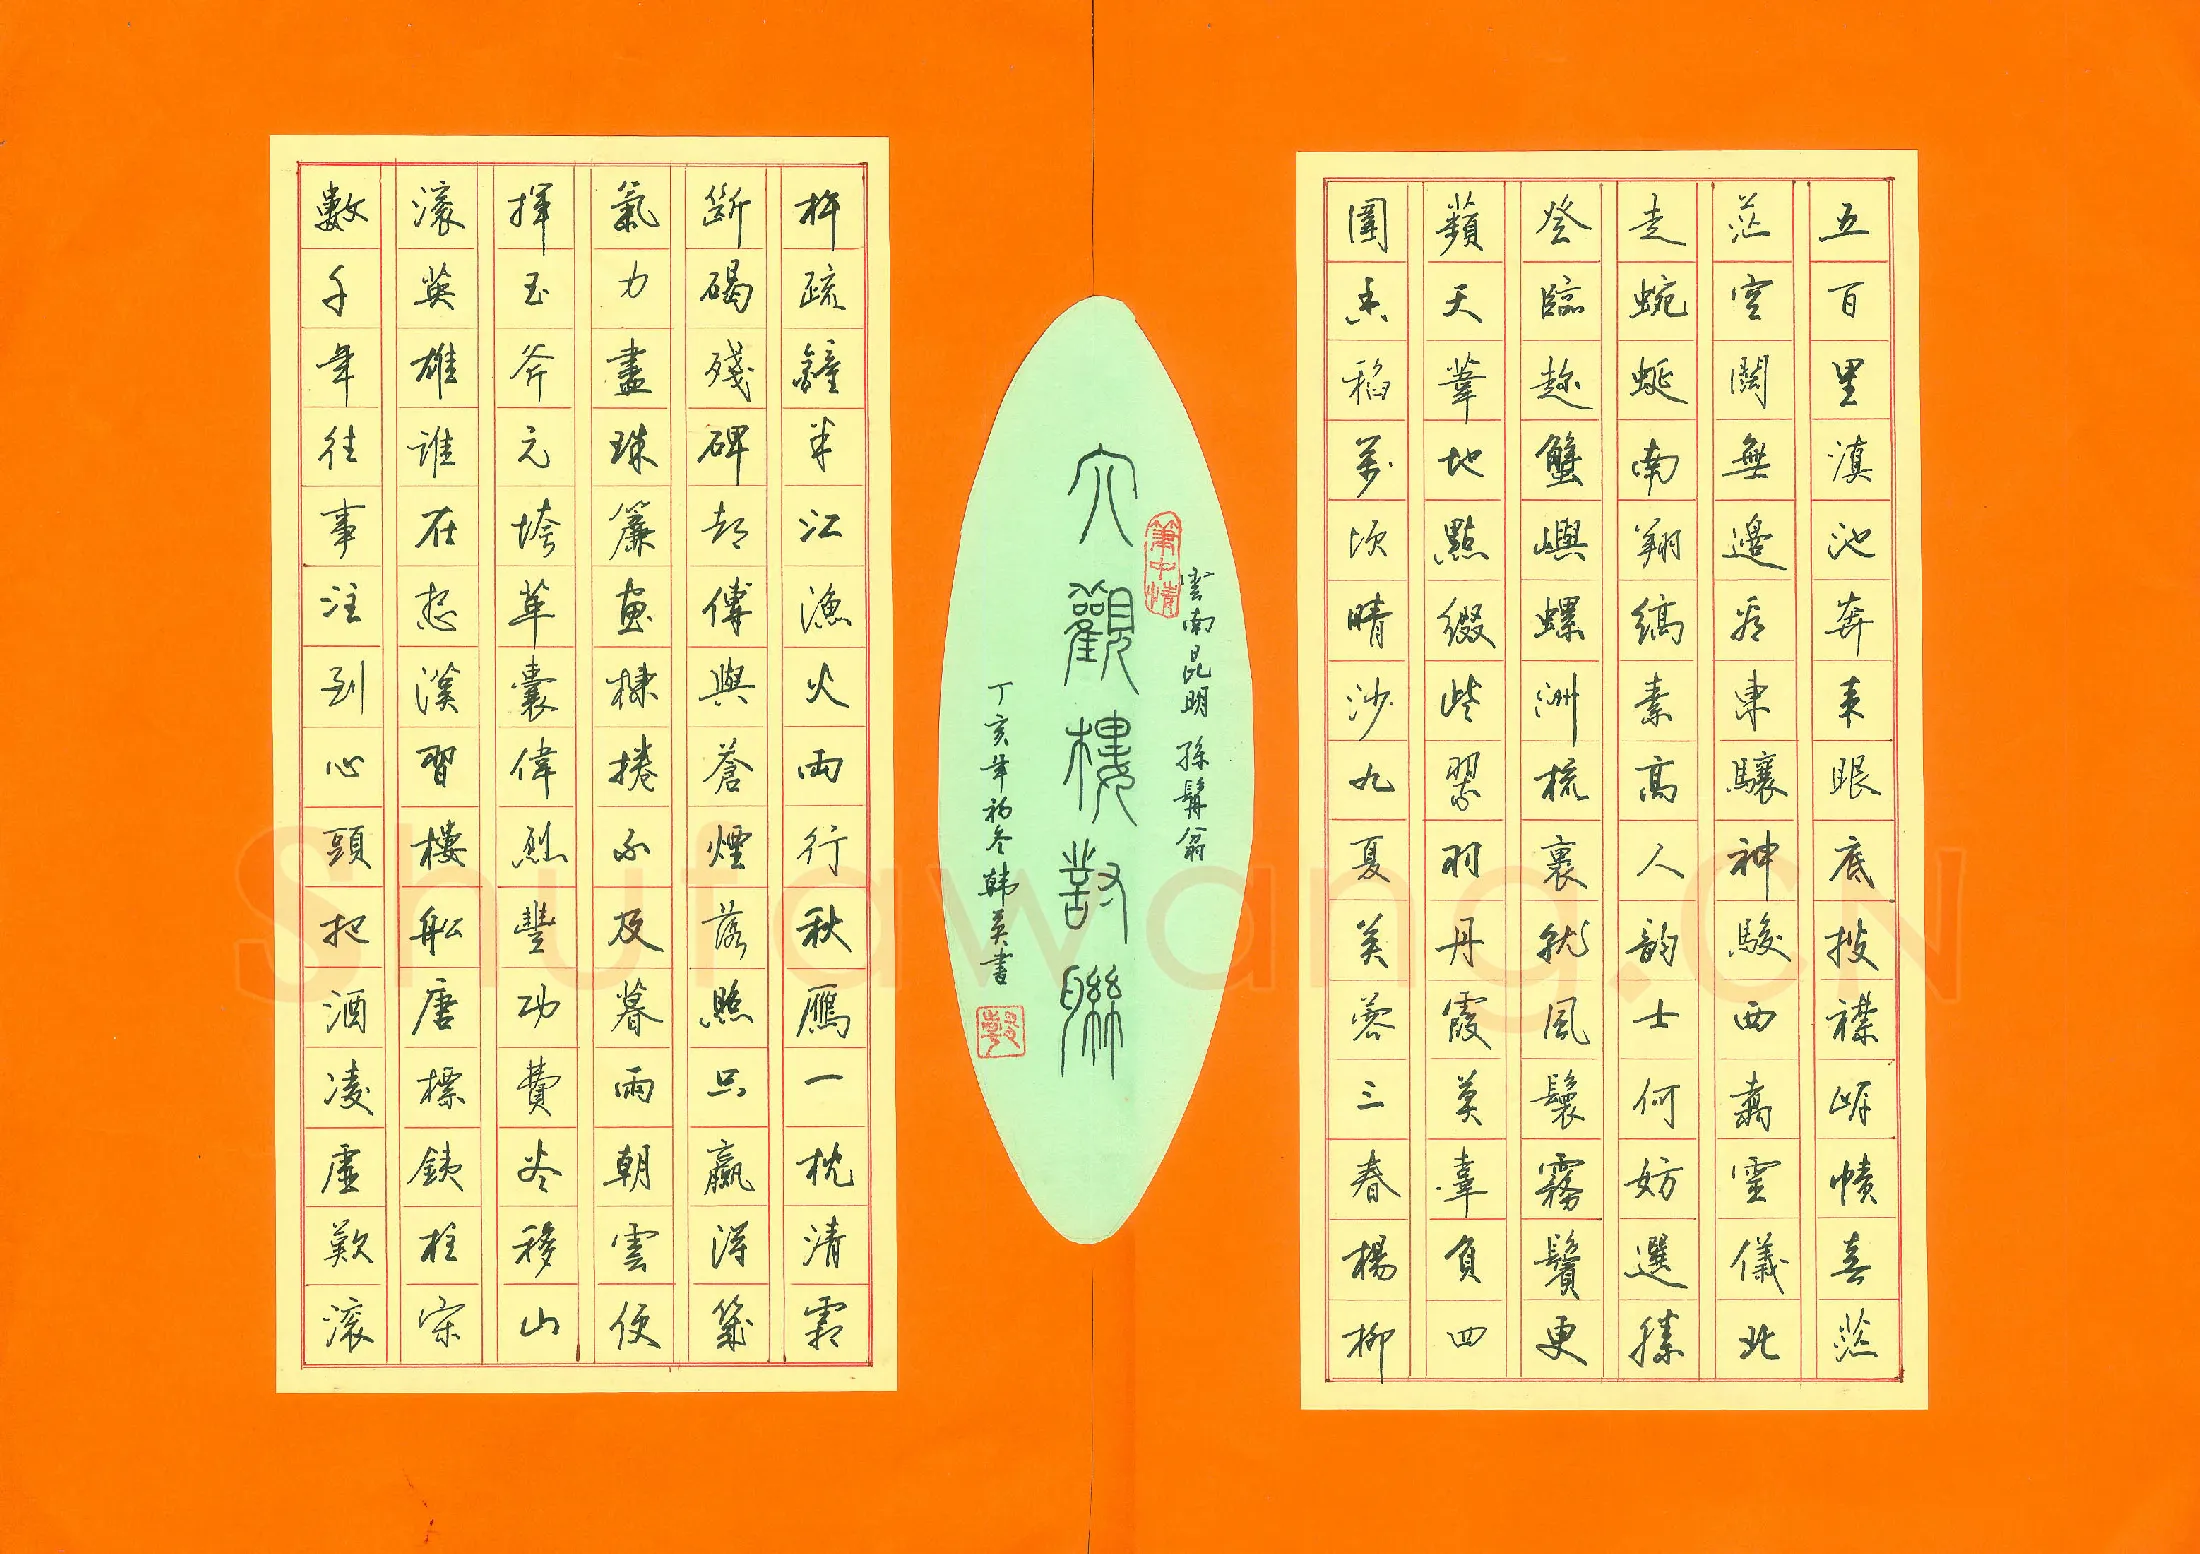 五百里滇池奔來眼底披襟岸幘喜茫
茫空闊無邊看東驤神駿西翥靈儀北
走蜿蜒南翔縞素高人韵士何妨選勝
登臨趁蟹嶼螺洲梳裹就風鬟霧鬢更
蘋天葦地點綴些翠羽丹霞莫辜負四
圍香稻萬頃晴沙九夏芙蓉三春楊柳
筆中情
雲南昆明 孫髯翁
大觀樓對聯
丁亥年初冬韩英書
數千年往事注到心頭把酒凌虛歎滾
滾英雄誰在想漢習樓船唐標鐵柱宋
揮玉斧元垮革囊偉烈豐功費盡移山
氣力盡珠簾畫棟捲不及暮雨朝雲便
斷碣殘碑都傅與蒼煙落照只贏得幾
杵疏鐘半江漁火兩行秋雁一枕清霜
Shufawang.CN